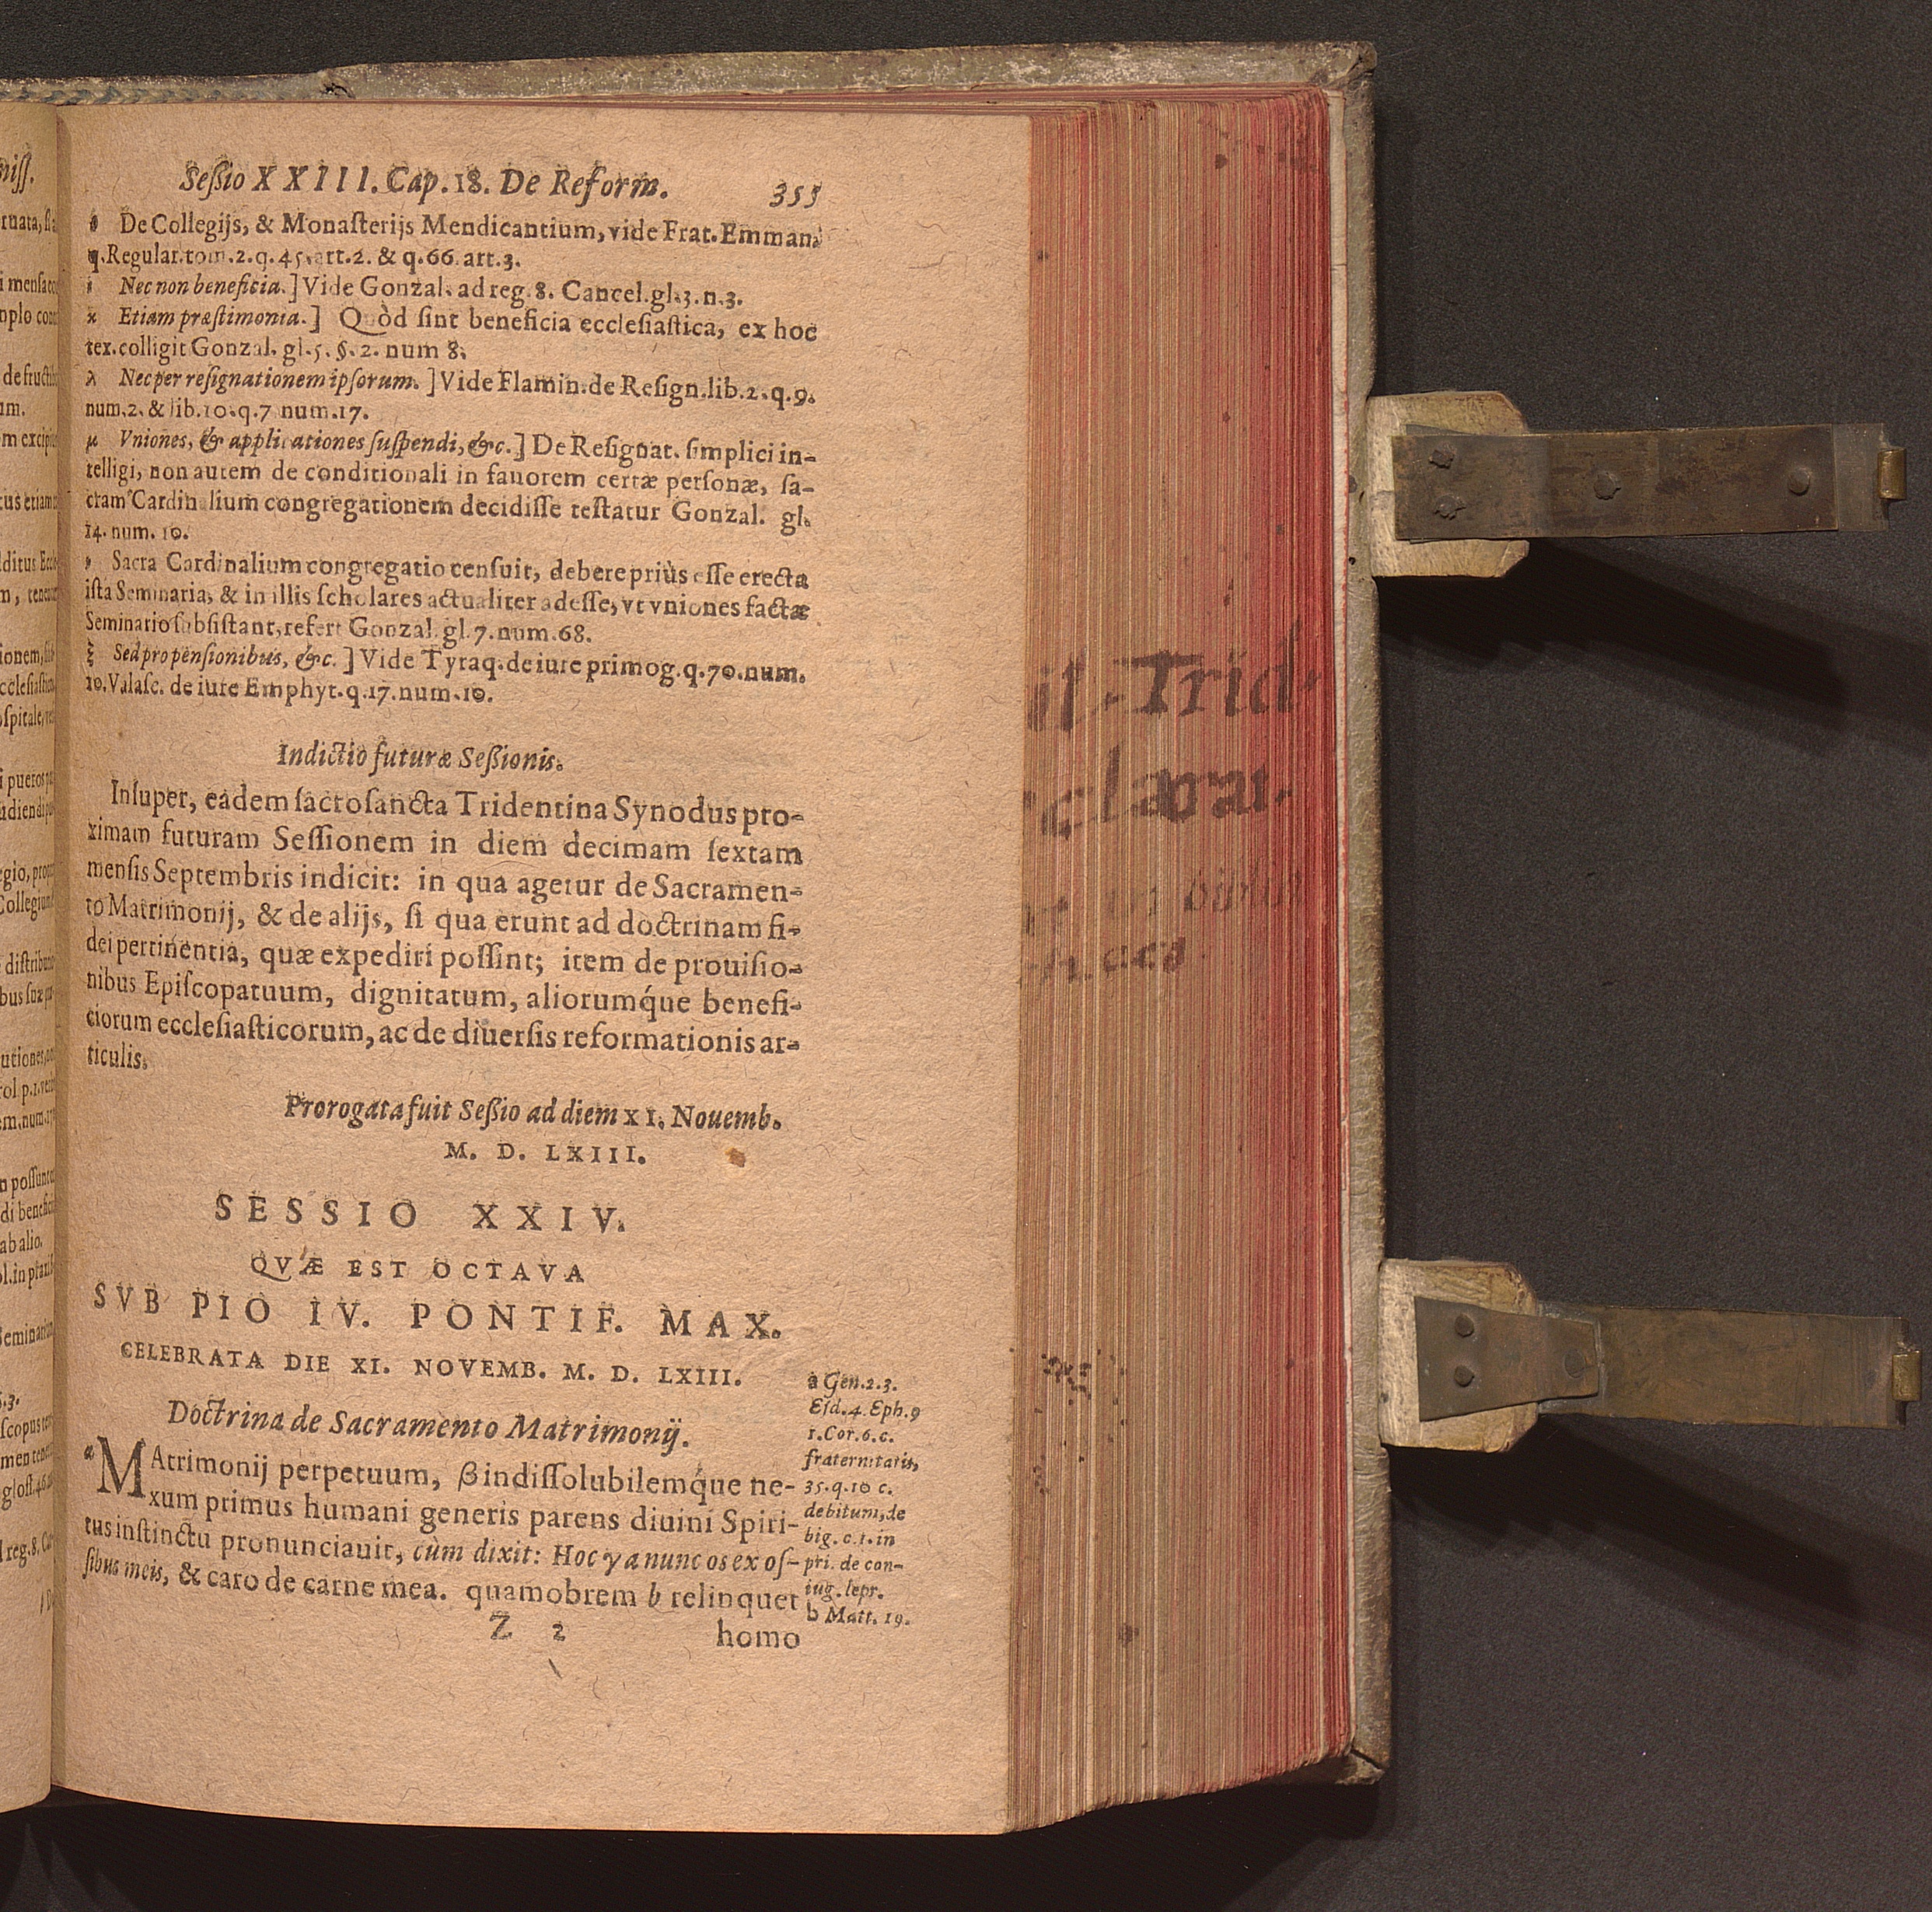 Seſsio XXIII. Cap. 18. De Reform. 355
De Collegijs, & Monaſterijs Mendicantium, vide Frat. Emman.
q. Regular. tom. 2. q. 45. art. 2. & q. 66. art. 3.
Nec non beneficia. ] Vide Gonzal. ad reg. 8. Cancel. gl. 3. n. 3.
κ Etiam præſtimonia. ] Quòd ſint beneficia eccleſiaſtica, ex hoc
tex. colligit Gonzal. gl. 5. §. 2. num 8.
λ Nec per reſignationem ipſorum. ] Vide Flamin. de Reſign. lib. 2. q. 9.
num. 2. & lib. 10. q. 7 num. 17.
μ Vniones, & applicationes ſuſpendi, &c. ] De Reſignat. ſimplici in-
telligi, non autem de conditionali in fauorem certæ perſonæ, ſa-
cram Cardinalium congregationem decidiſſe teſtatur Gonzal. gl.
14. num. 10.
ν Sacra Cardinalium congregatio cenſuit, debere priùs eſſe erecta
iſta Seminaria, & in illis ſcholares actualiter adeſſe, vt vniones factæ
Seminario ſubſiſtant, refert Gonzal. gl. 7. num. 68.
ξ Sed pro penſionibus, &c. ] Vide Tyraq. de iure primog. q. 70. num.
10. Valaſc. de iure Emphyt. q. 17. num. 10.
Indictio futuræ Seſsionis.
Inſuper, eadem ſacroſancta Tridentina Synodus pro-
ximam futuram Seſſionem in diem decimam ſextam
menſis Septembris indicit: in qua agetur de Sacramen-
to Matrimonij, & de alijs, ſi qua erunt ad doctrinam fi-
dei pertinentia, quæ expediri poſſint; item de prouiſio-
nibus Epiſcopatuum, dignitatum, aliorumq́ue benefi-
ciorum eccleſiaſticorum, ac de diuerſis reformationis ar-
ticulis.
Prorogata fuit Seſsio ad diem XI. Nouemb.
M. D. LXIII.
SESSIO XXIV.
QVÆ EST OCTAVA
SVB PIO IV. PONTIF. MAX.
CELEBRATA DIE XI. NOVEMB. M. D. LXIII.
Doctrina de Sacramento Matrimonij.
a MAtrimonij perpetuum, β indiſſolubilemq́ue ne-
xum primus humani generis parens diuini Spiri-
tus inſtinctu pronunciauit, cùm dixit: Hoc γ a nunc os ex oſ-
ſibus meis, & caro de carne mea. quamobrem b relinquet
Z 2 homo
a Gen. 2. 3.
Eſd. 4. Eph. 9
1. Cor. 6. c.
fraternitatis,
35. q. 10 c.
debitum, de
big. c. 1. in
pri. de con-
iug. lepr.
b Matt. 19.
il. Trid.
clarat.